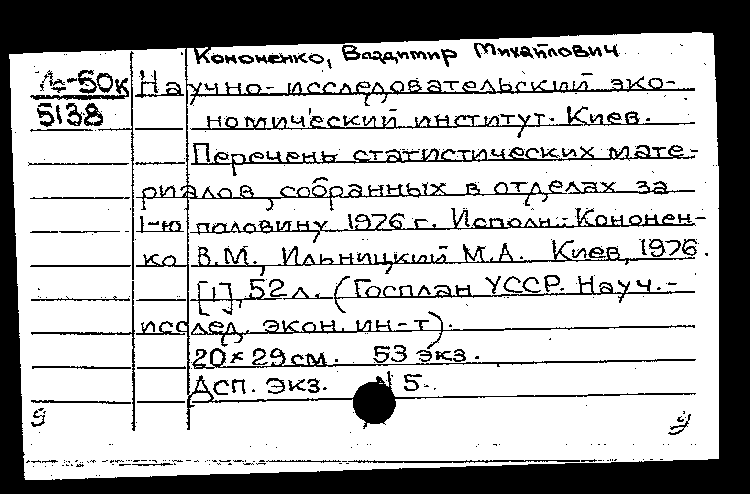 Кононенко, Владимир Михайлович
№-50к Научно-исследовательский эко-
5138 номический институт. Киев.
Перечень статистических мате-
риалов, собранных в отделах за
1-ю половину 1976 г. Исполн.: Кононен-
ко В.М., Ильницкий М.А. Киев, 1976.
[1], 52 л. (Госплан УССР. Науч.-
исслед. экон. ин-т).
20×29 см. 53 экз.
Дсп. Экз. N 5.
9 9